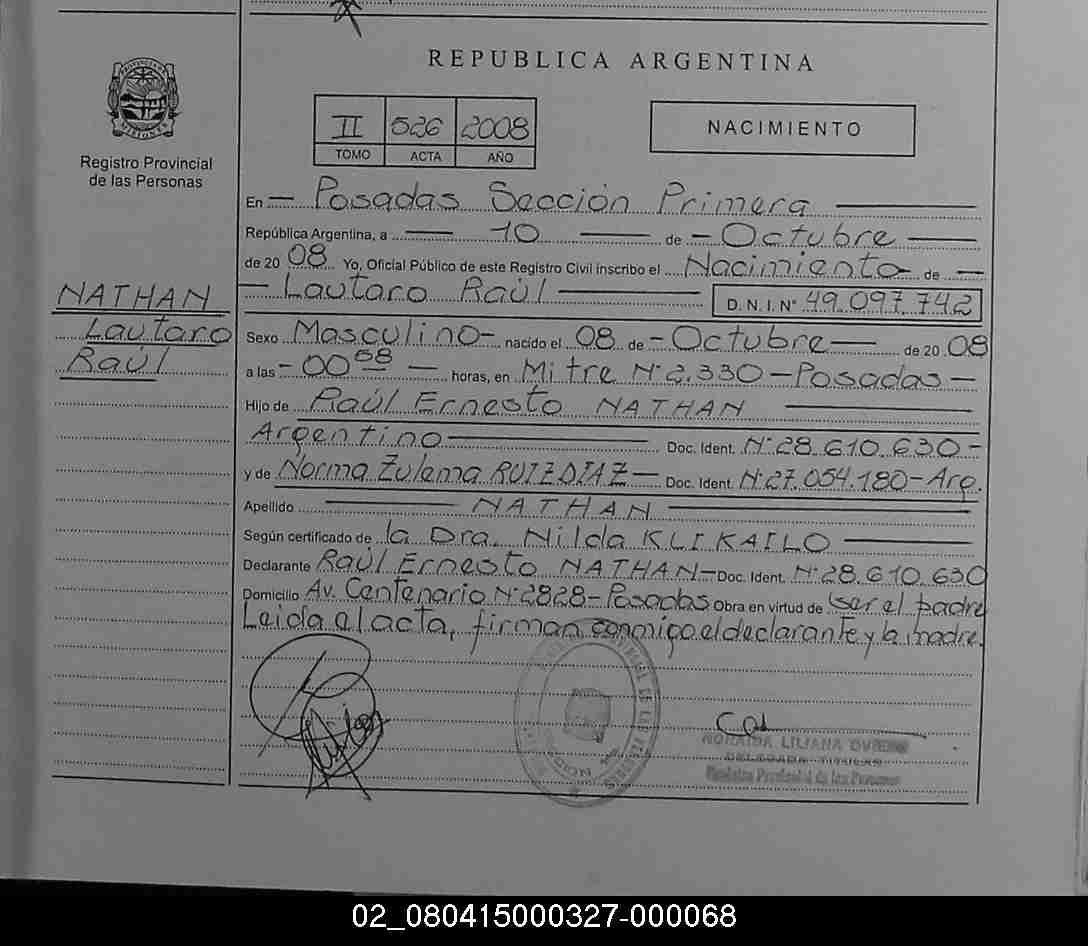 REPUBLICA ARGENTINA
PROVINCIA DE
MISIONES
Registro Provincial
de las Personas
II 526 2008
TOMO ACTA AÑO
NACIMIENTO
En — Posadas Sección Primera —
República Argentina, a — 10 — de — Octubre —
de 20 08 Yo, Oficial Público de este Registro Civil inscribo el Nacimiento — de —
— Lautaro Raúl — D.N.I. N° 49.097.742
NATHAN
Lautaro
Raúl
Sexo Masculino — nacido el 08 de — Octubre — de 20 08
a las — 00 58 — horas, en Mitre N° 2.330 — Posadas —
Hijo de Raúl Ernesto NATHAN —
Argentino — Doc. Ident. N° 28.610.630 —
y de Norma Zulema RUIZ DIAZ — Doc. Ident. N° 27.054.180 — Arg.
Apellido — NATHAN —
Según certificado de la Dra. Nilda KLIKAILO —
Declarante Raúl Ernesto NATHAN — Doc. Ident. N° 28.610.630
Domicilio Av. Centenario N° 2828 — Posadas Obra en virtud de ser el padre
Leida el acta, firman conmigo el declarante y la madre.
LILIANA
DELEGADA TITULAR
Registro Provincial de las Personas
02_080415000327-000068